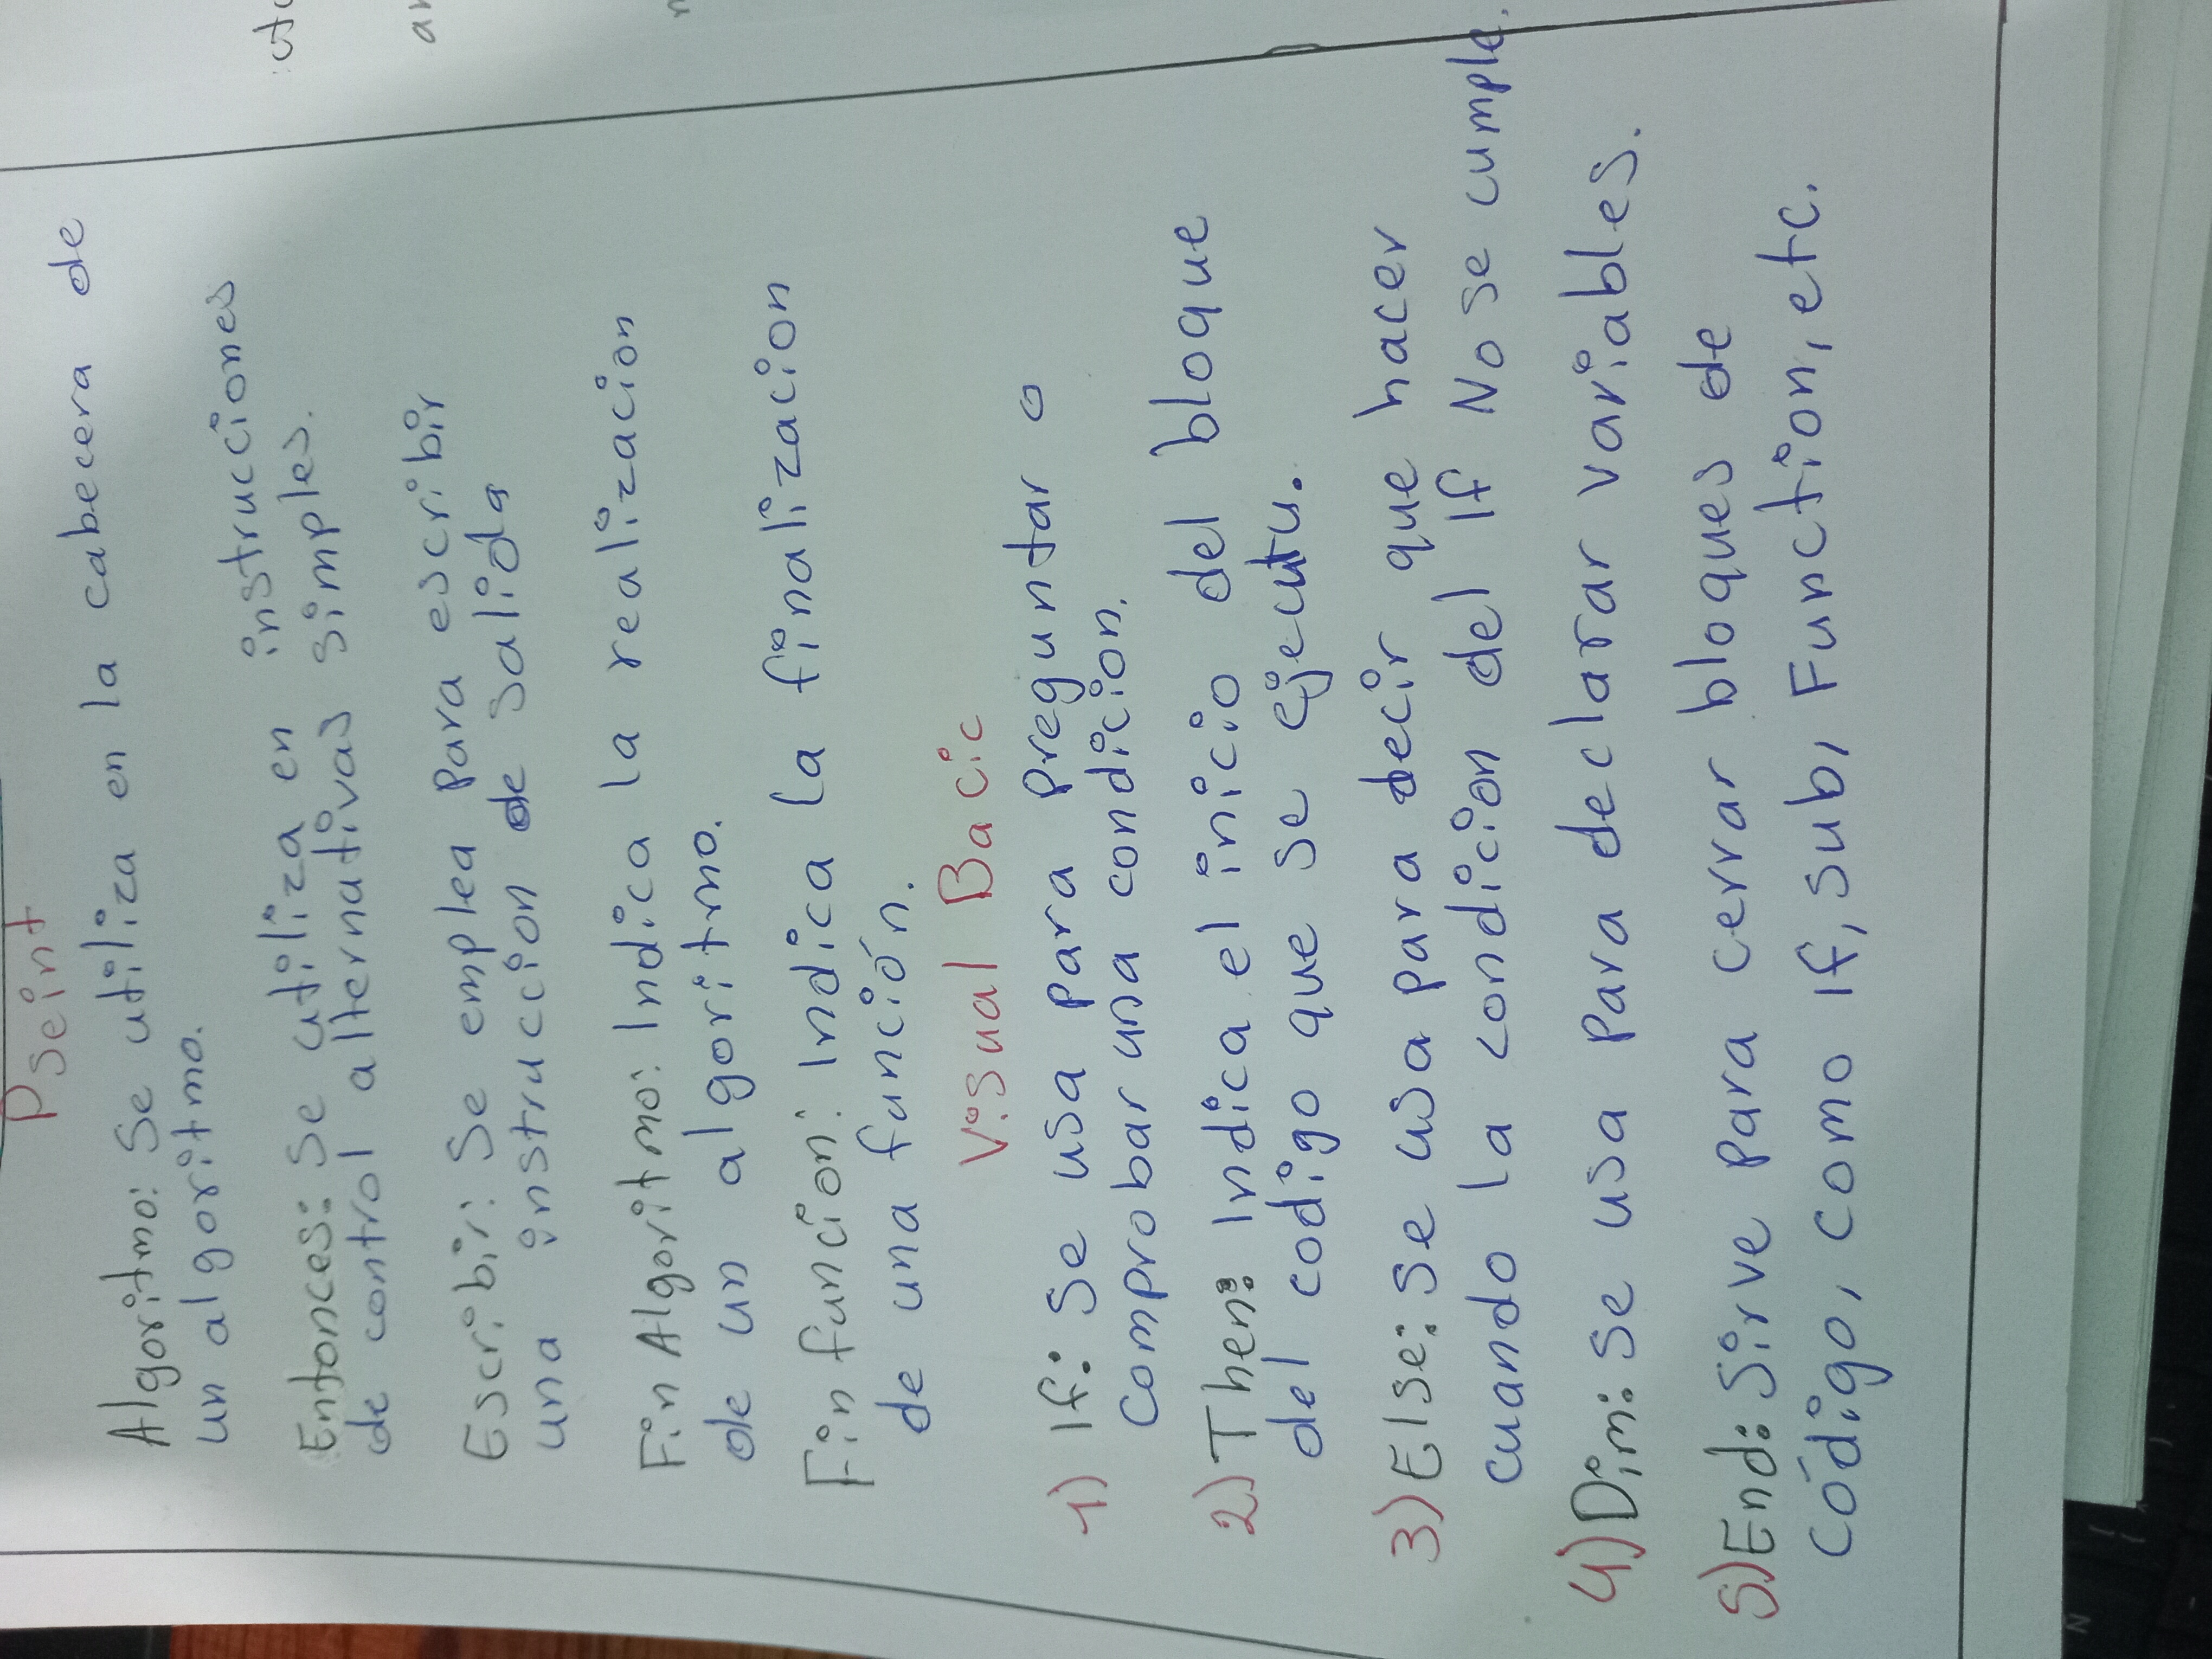 Pseint
Algoritmo: Se utiliza en la cabecera de
un algoritmo.
Entonces: Se utiliza en instrucciones
de control alternativas simples.
Escribir: Se emplea para escribir
una instruccion de salida
Fin Algoritmo: Indica la realizacion
de un algoritmo.
Fin funcion: Indica la finalizacion
de una función.
Visual Bacic
1) If: Se usa para preguntar o
comprobar una condicion.
2) Then: Indica el inicio del bloque
del codigo que se ejecutu.
3) Else: se usa para decir que hacer
cuando la condicion del If No se cumple.
4) Dim: se usa para declarar variables.
5) End: Sirve para cerrar bloques de
código, como If, sub, Function, etc.